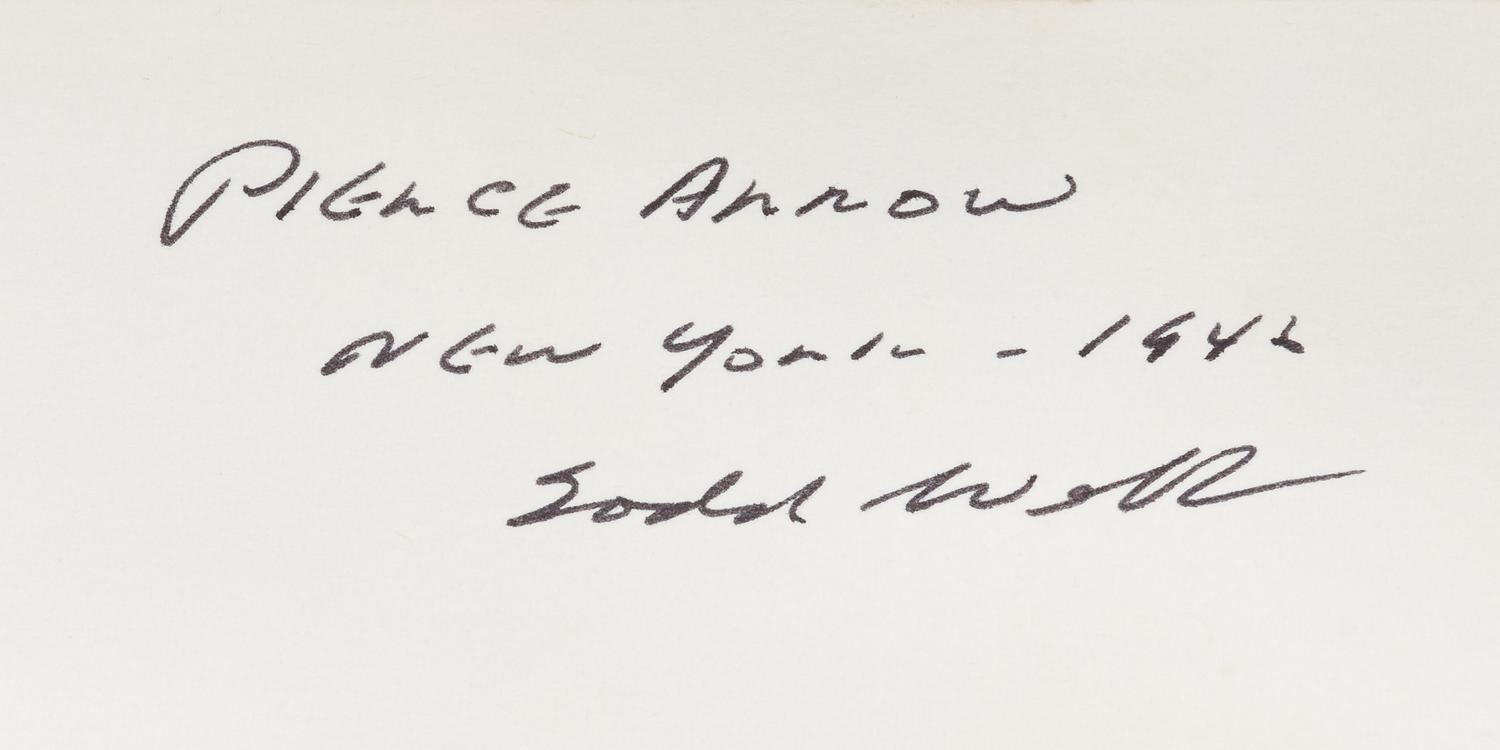 PIERCE ARROW
NEW YORK - 1946
Todd Webb